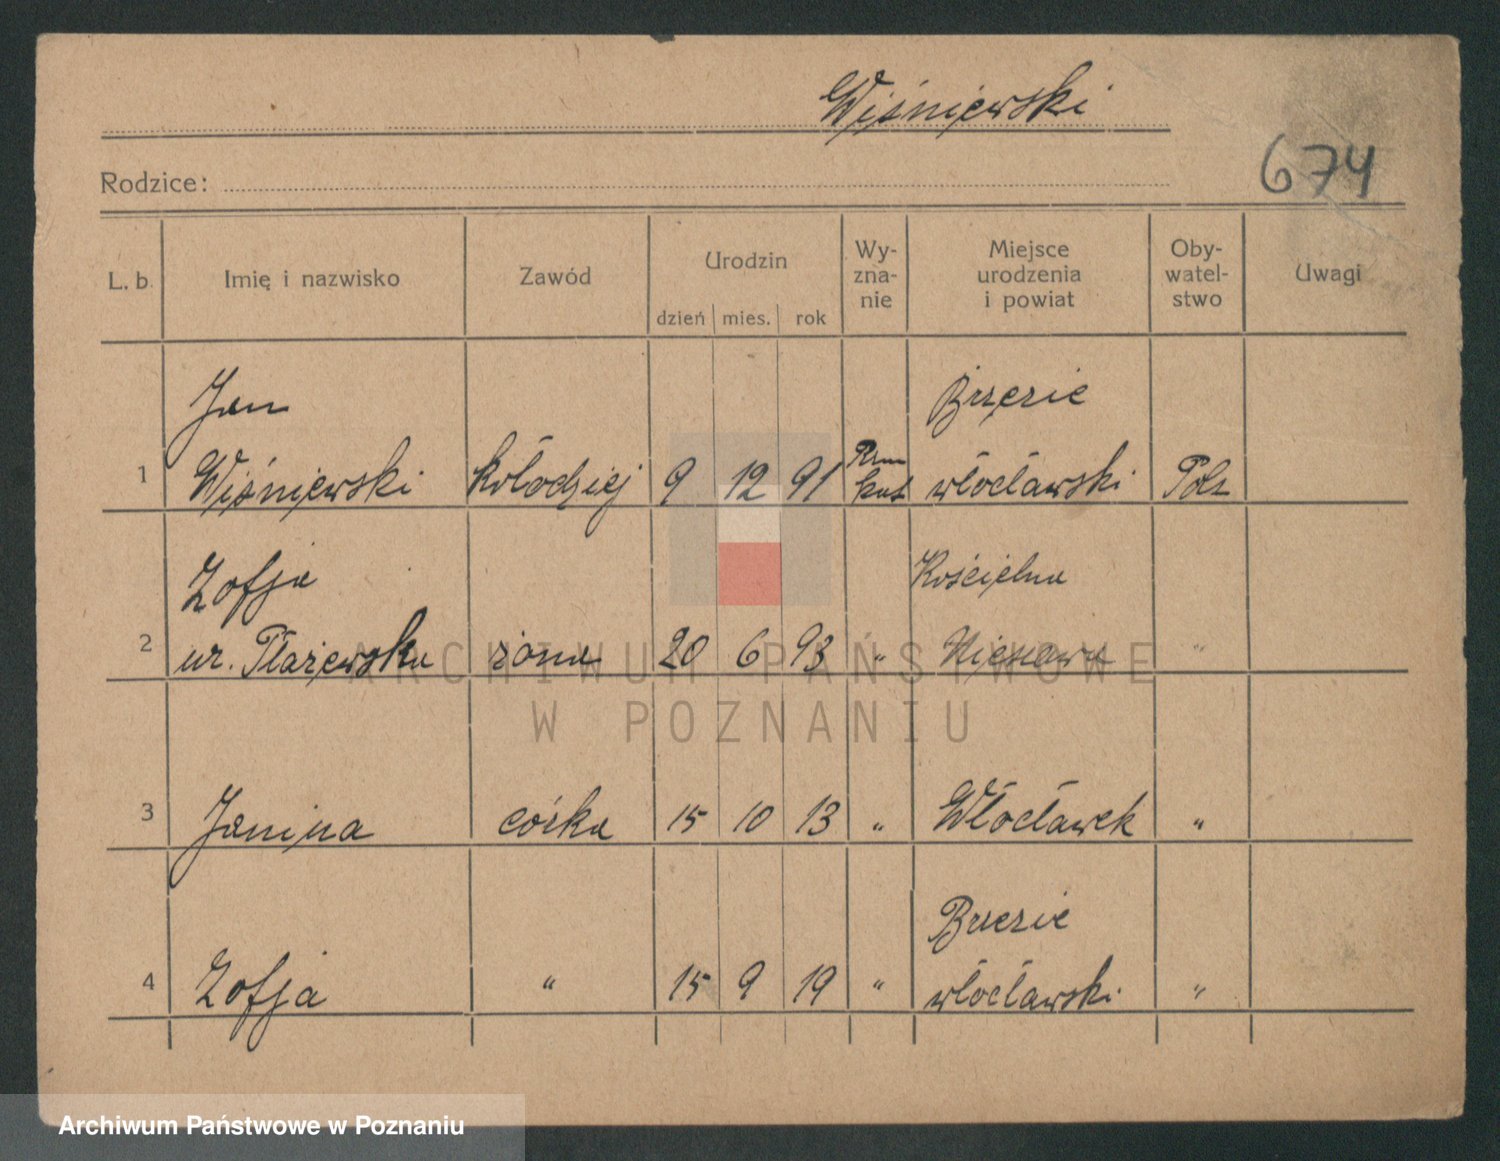 Wiśniewski
674
Rodzice:
L. b. Imię i nazwisko Zawód Urodzin dzień mies. rok Wy-zna-nie Miejsce urodzenia i powiat Oby-watel-stwo Uwagi
Jan Brzezie
1 Wiśniewski kołodziej 9 12 91 Rzm kat włocławski Pols
Zofja Kościelna
2 ur. Płażewska żona 20 6 93 " Nieszawa "
3 Janina córka 15 10 13 " Włocławek "
Brzezie
4 Zofja " 15 9 19 " włocławski "
ARCHIWUM PAŃSTWOWE
W POZNANIU
Archiwum Państwowe w Poznaniu